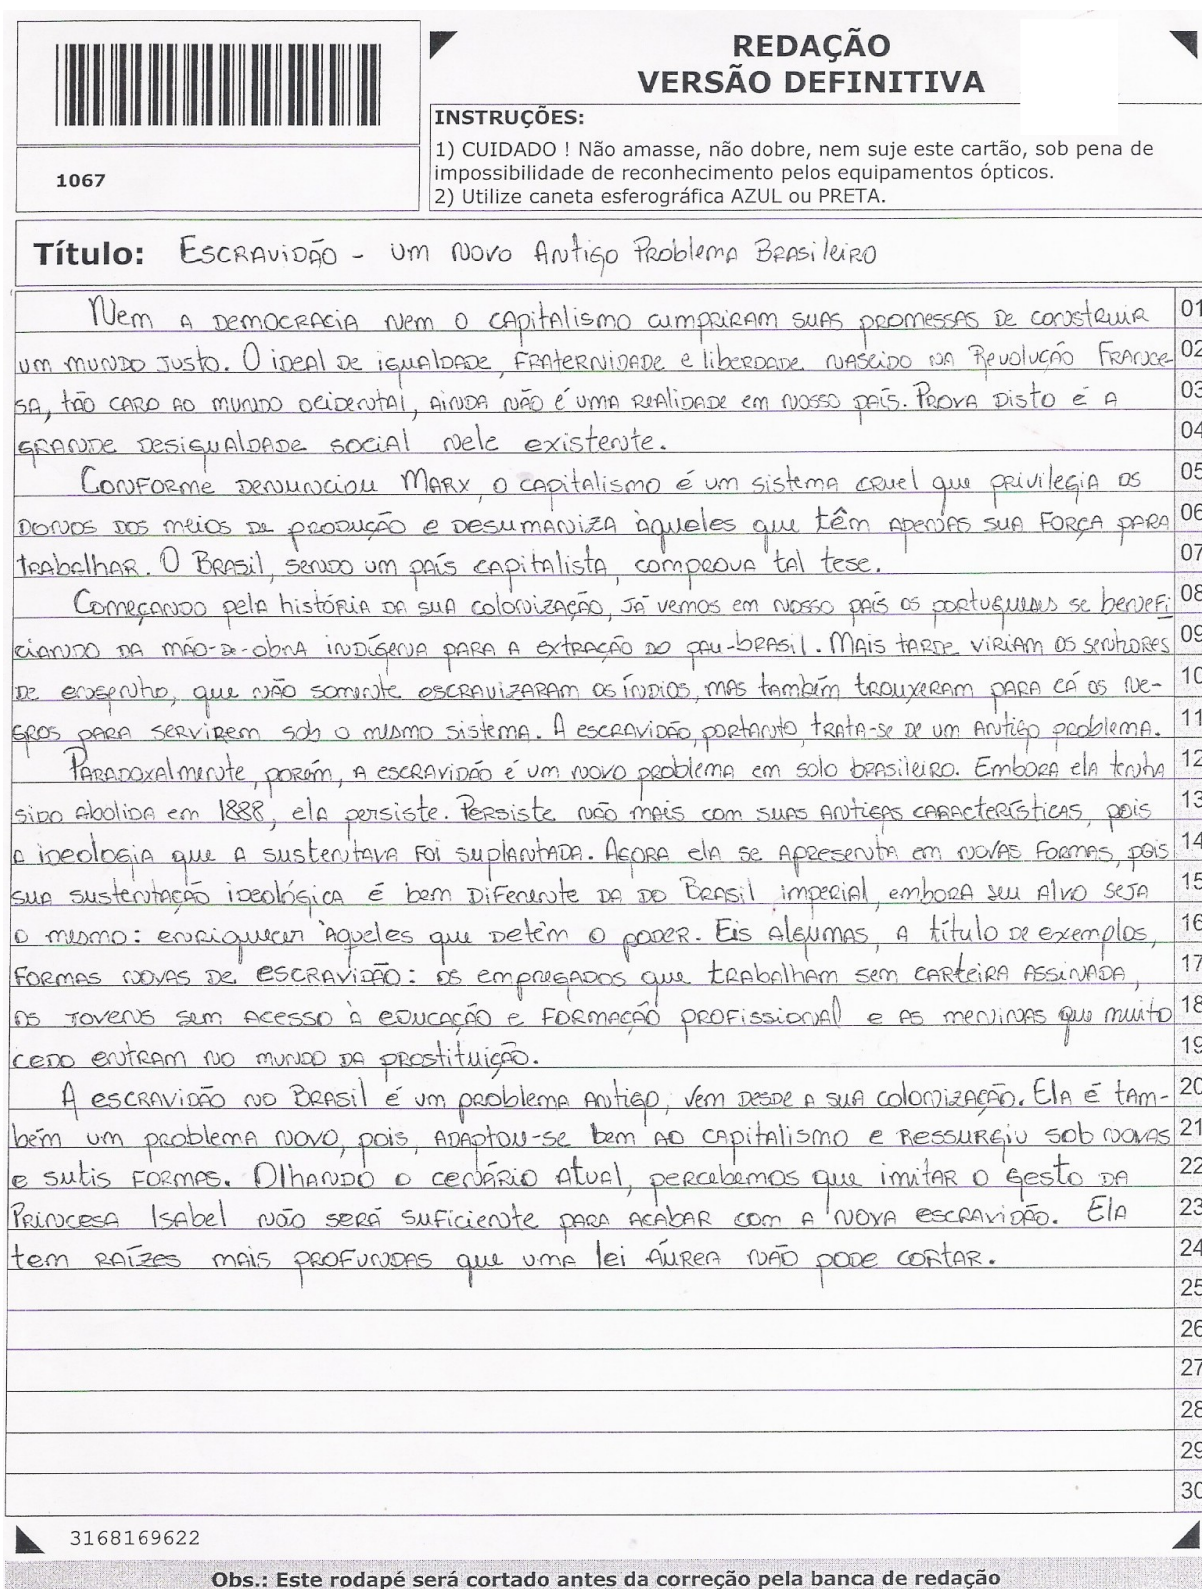 REDAÇÃO
VERSÃO DEFINITIVA
INSTRUÇÕES:
1) CUIDADO ! Não amasse, não dobre, nem suje este cartão, sob pena de
impossibilidade de reconhecimento pelos equipamentos ópticos.
2) Utilize caneta esferográfica AZUL ou PRETA.
1067
Título: Escravidão - um novo Antigo Problema Brasileiro
Nem a democracia nem o capitalismo cumpriram suas promessas de construir 01
um mundo justo. O ideal de igualdade, fraternidade e liberdade nascido na Revolução France- 02
sa, tão caro ao mundo ocidental, ainda não é uma realidade em nosso país. Prova disto é a 03
grande desigualdade social nele existente. 04
Conforme denunciou Marx, o capitalismo é um sistema cruel que privilegia os 05
donos dos meios de produção e desumaniza àqueles que têm apenas sua força para 06
trabalhar. O Brasil, sendo um país capitalista, comprova tal tese. 07
Começando pela história da sua colonização, já vemos em nosso país os portugueses se benefi 08
ciando da mão-de-obra indígena para a extração do pau-brasil. Mais tarde viriam os senhores 09
de engenho, que não somente escravizaram os índios, mas também trouxeram para cá os ne- 10
gros para servirem sob o mesmo sistema. A escravidão, portanto, trata-se de um antigo problema. 11
Paradoxalmente, porém, a escravidão é um novo problema em solo brasileiro. Embora ela tenha 12
sido abolida em 1888, ela persiste. Persiste não mais com suas antigas características, pois 13
a ideologia que a sustentava foi suplantada. Agora ela se apresenta em novas formas, pois 14
sua sustentação ideológica é bem diferente da do Brasil imperial, embora seu alvo seja 15
o mesmo: enriquecer àqueles que detêm o poder. Eis algumas, a título de exemplos, 16
formas novas de escravidão: os empregados que trabalham sem carteira assinada, 17
os jovens sem acesso à educação e formação profissional e as meninas que muito 18
cedo entram no mundo da prostituição. 19
A escravidão no Brasil é um problema antigo, vem desde a sua colonização. Ela é tam- 20
bém um problema novo, pois, adaptou-se bem ao capitalismo e ressurgiu sob novas 21
e sutis formas. Olhando o cenário atual, percebemos que imitar o gesto da 22
Princesa Isabel não será suficiente para acabar com a nova escravidão. Ela 23
tem raízes mais profundas que uma lei áurea não pode cortar. 24
25
26
27
28
29
30
3168169622
Obs.: Este rodapé será cortado antes da correção pela banca de redação